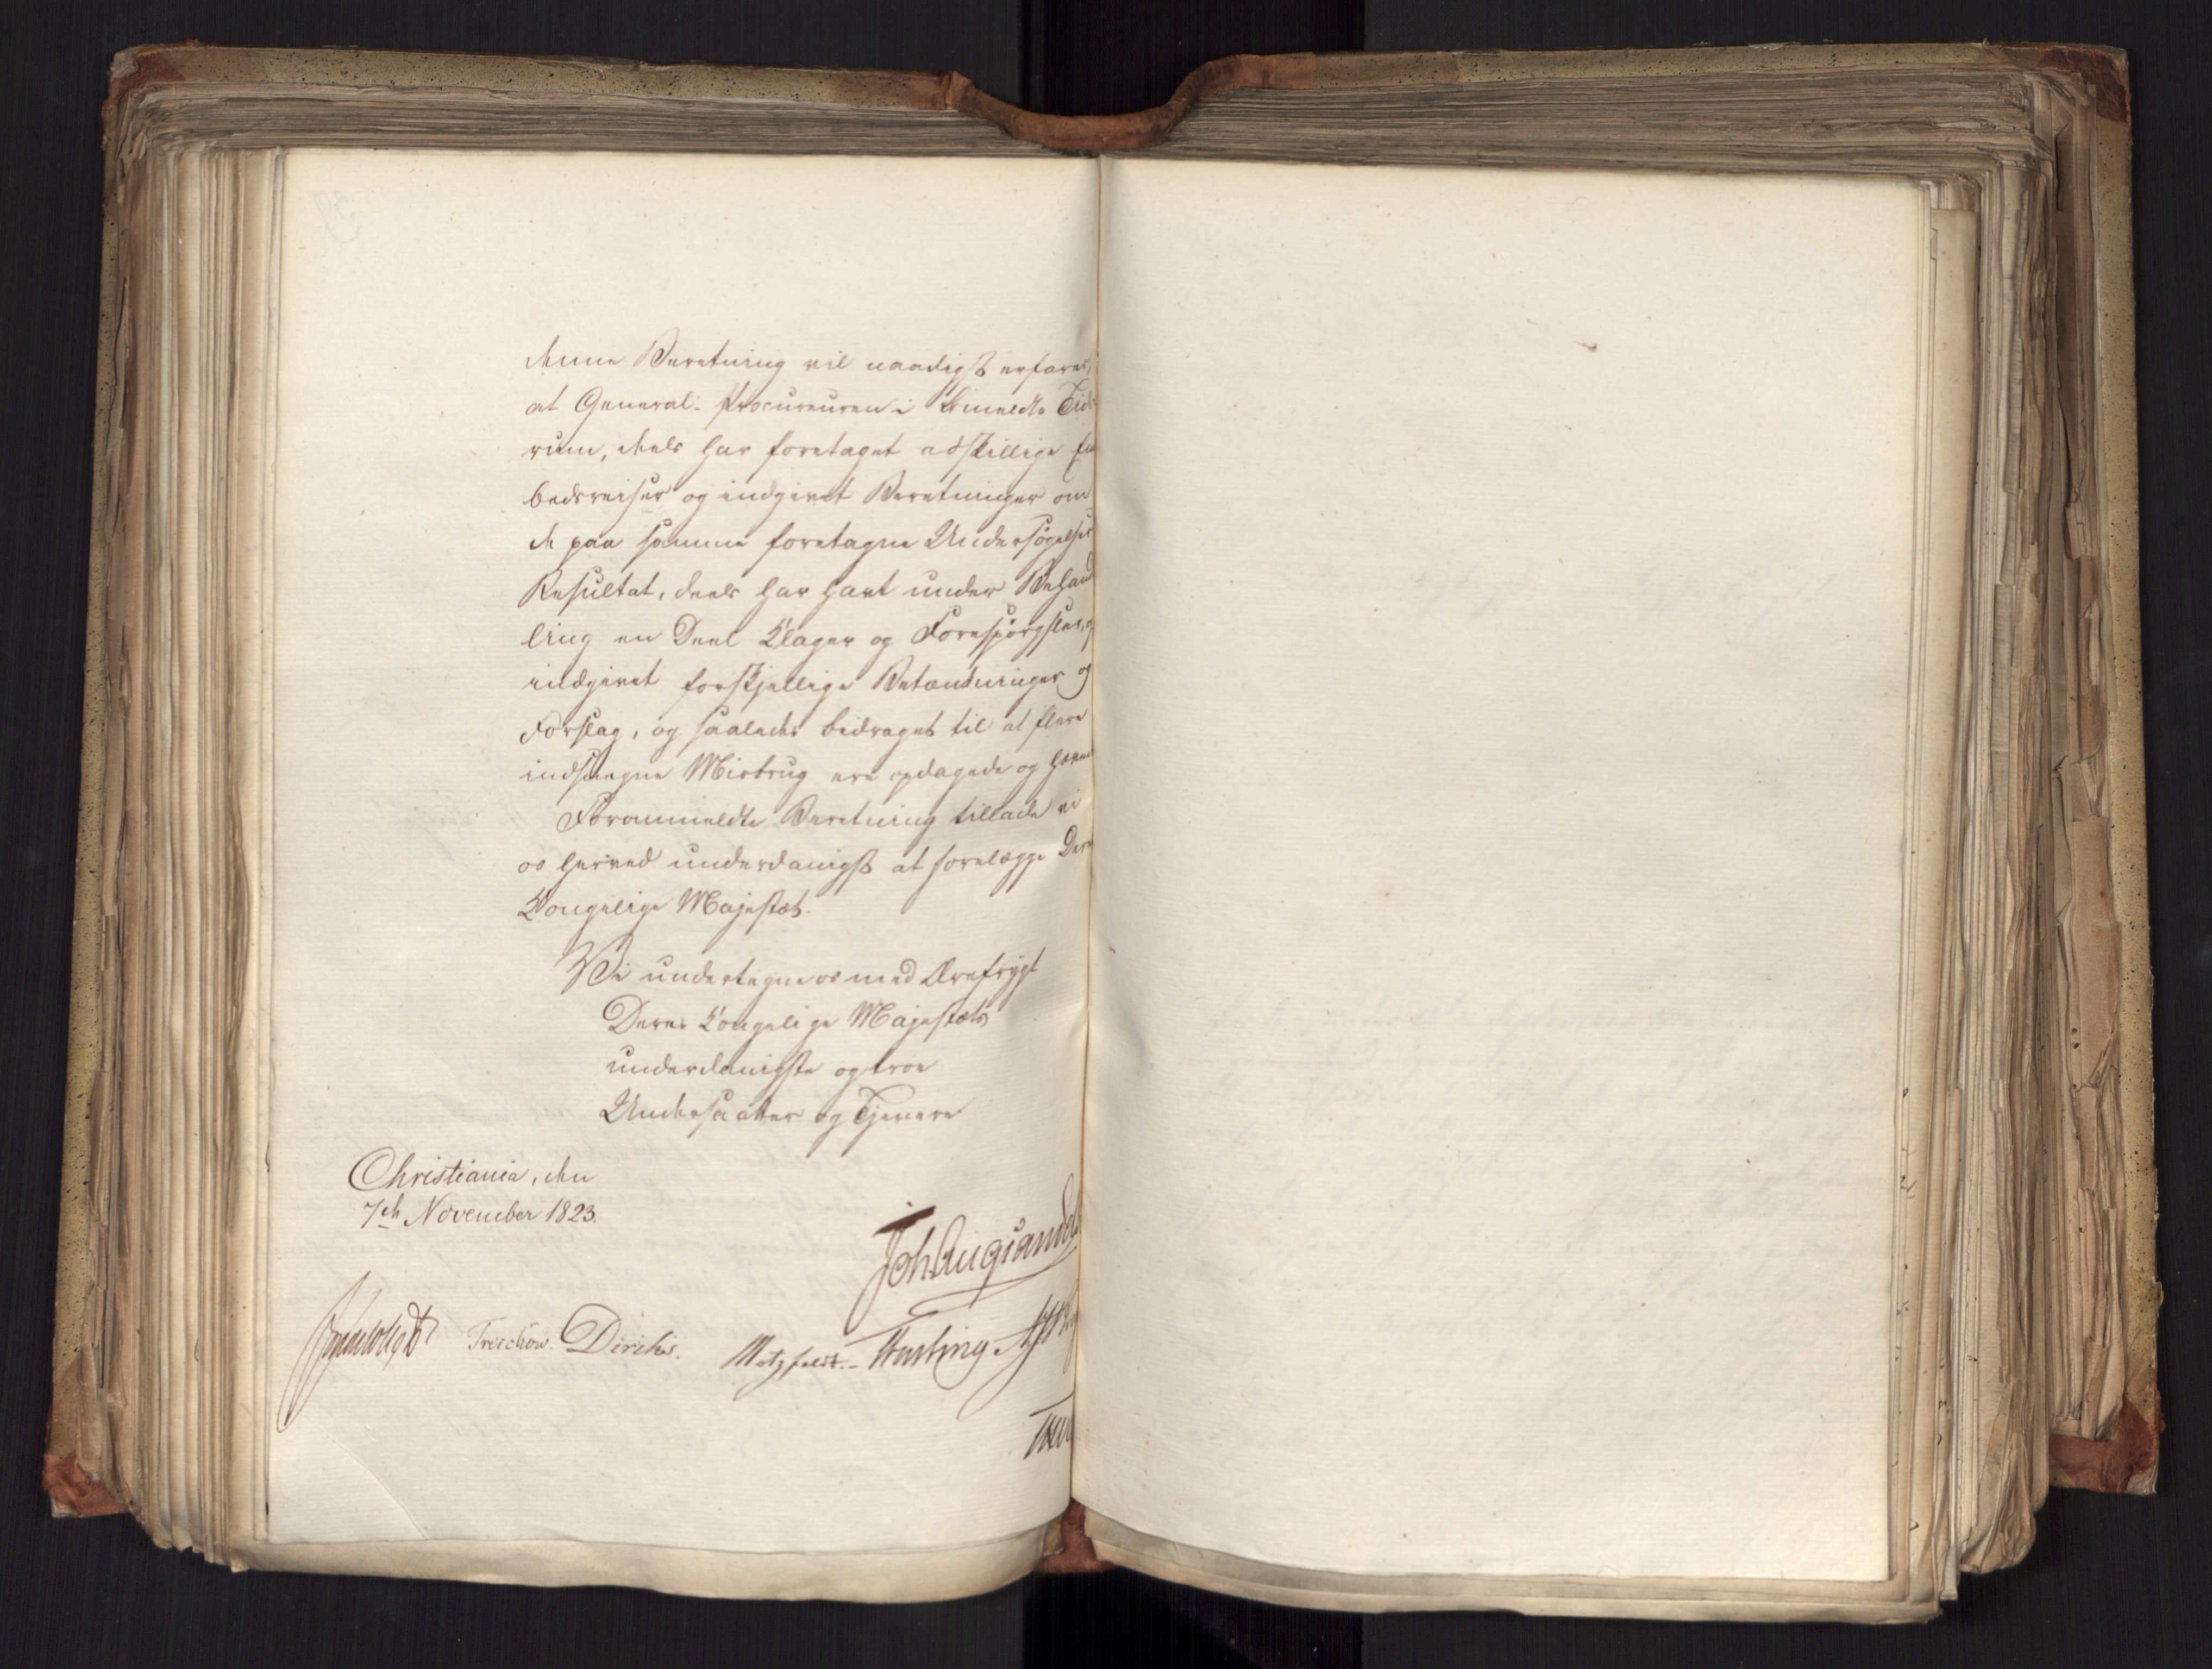 denne Beretning vil naadigst erfares,
at General-Procureuren i bemeldte Tids
rum, deels har foretaget adskillige Em
bedsreiser og indgivet Beretninger om
de paa samme foretagne Undersøgelsers
Resultat, deels har havt under Behand
ling en Deel Klager og Forespørgsler, og
indgivet forskjellige Betænkninger og
Forslag, og saaledes bidraget til at flere
indsnegne Misbrug ere opdagede og hævede
Foranmeldte Beretning tillade vi
os herved underdanigst at forelægge Deres
Kongelige Majestæt.
Vi undertegne os med Ærefrygt
Deres Kongelige Majestæts
underdanigste og troe
Undersaatter og Tjenere
Christiania, den
7de November 1823.
Joh Aug Sandels
Sommerhjelm Treschow. Diriks. Motzfeldt. Fasting